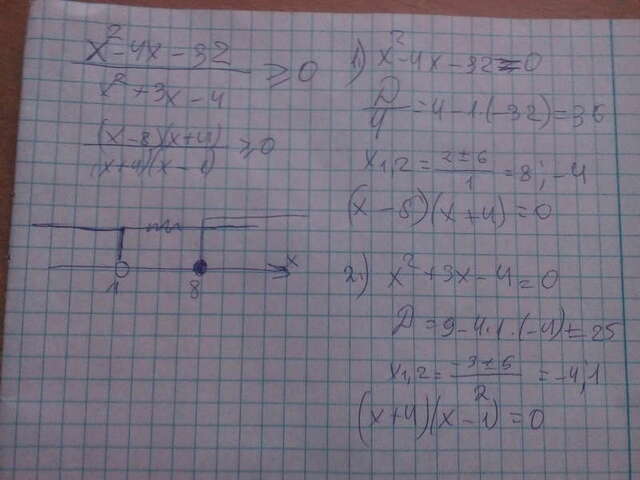 x²-4x-32 / x²+3x-4 ≥ 0
(x-8)(x+4) / (x+4)(x-1) ≥ 0
x
1 8
1) x²-4x-32=0
D/4 = 4-1·(-32)=36
x1,2 = 2±6 / 1 = 8; -4
(x-8)(x+4)=0
2) x²+3x-4=0
D=9-4·1·(-4)=25
x1,2 = -3±5 / 2 = -4;1
(x+4)(x-1)=0